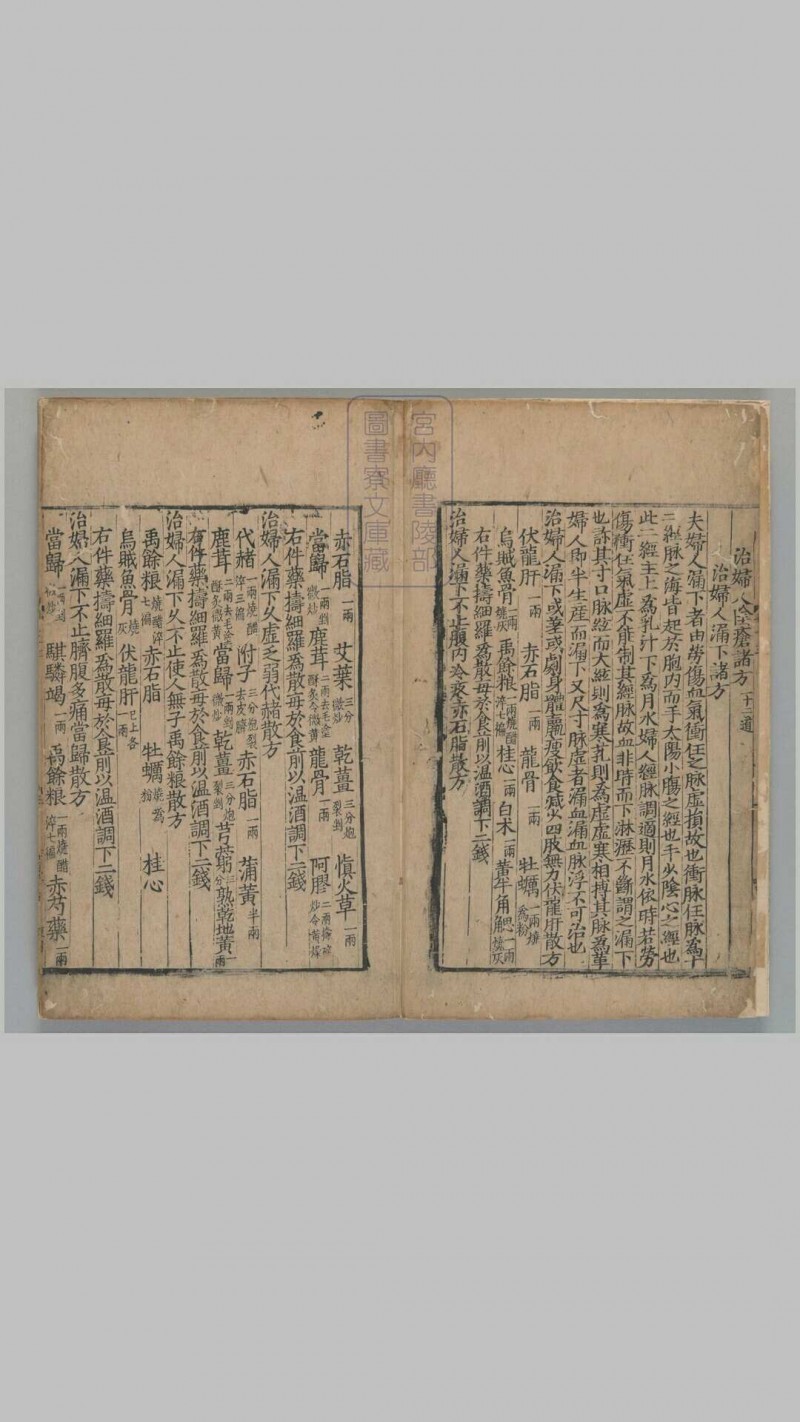 治婦人陰瘡諸方十二道
治婦人漏下諸方
夫婦人漏下者由勞傷血氣衝任之脉虛損故也衝脉任脉為十
二經脉之海皆起於胞內而手太陽小腸之經也手少陰心之經也
此二經主上為乳汁下為月水婦人經脉調適則月水依時若勞
傷衝任氣虛不能制其經脉故血非時而下淋瀝不斷謂之漏下
也診其寸口脉弦而大弦則為寒芤則為虛虛寒相搏其脉為革
婦人即半生産而漏下又尺寸脉虛者漏血漏血脉浮不可治也
治婦人漏下或差或劇身體羸瘦飲食减少四肢無力伏龍肝散方
伏龍肝一兩 赤石脂一兩 龍骨一兩 牡蠣一兩燒為粉
烏賊魚骨一兩燒灰 禹餘粮一兩燒醋淬七徧 桂心一兩 白术一兩 黄牛角䚡一兩燒灰
右件藥擣細羅為散每於食前以温酒調下二錢
治婦人漏下不止腹內冷疼赤石脂散方
赤石脂一兩 艾葉三分微炒 乾薑三分炮裂剉 慎火草一兩
當歸一兩剉微炒 鹿茸二兩去毛塗酥炙令微黄 龍骨一兩 阿膠二兩擣碎炒令黄燥
右件藥擣細羅為散每於食前以温酒調下二錢
治婦人漏下久虛乏弱代赭散方
代赭一兩燒醋淬三徧 附子三分炮裂去皮臍 赤石脂一兩 蒲黄半兩
鹿茸二兩去毛塗酥炙微黄 當歸一兩剉微炒 乾薑三分炮裂剉 芎藭三分 熟乾地黄一兩
右件藥擣細羅為散每於食前以温酒調下二錢
治婦人漏下久不止使人無子禹餘粮散方
禹餘粮燒醋淬七徧 赤石脂 牡蠣燒為粉 桂心
烏賊魚骨燒灰 伏龍肝已上各一兩
右件藥擣細羅為散每於食前以温酒調下二錢
治婦人漏下不止臍腹多痛當歸散方
當歸一兩剉微炒 騏驎竭一兩 禹餘粮一兩燒醋淬七徧 赤芍藥一兩
宮內廳書陵部
圖書寮文庫藏